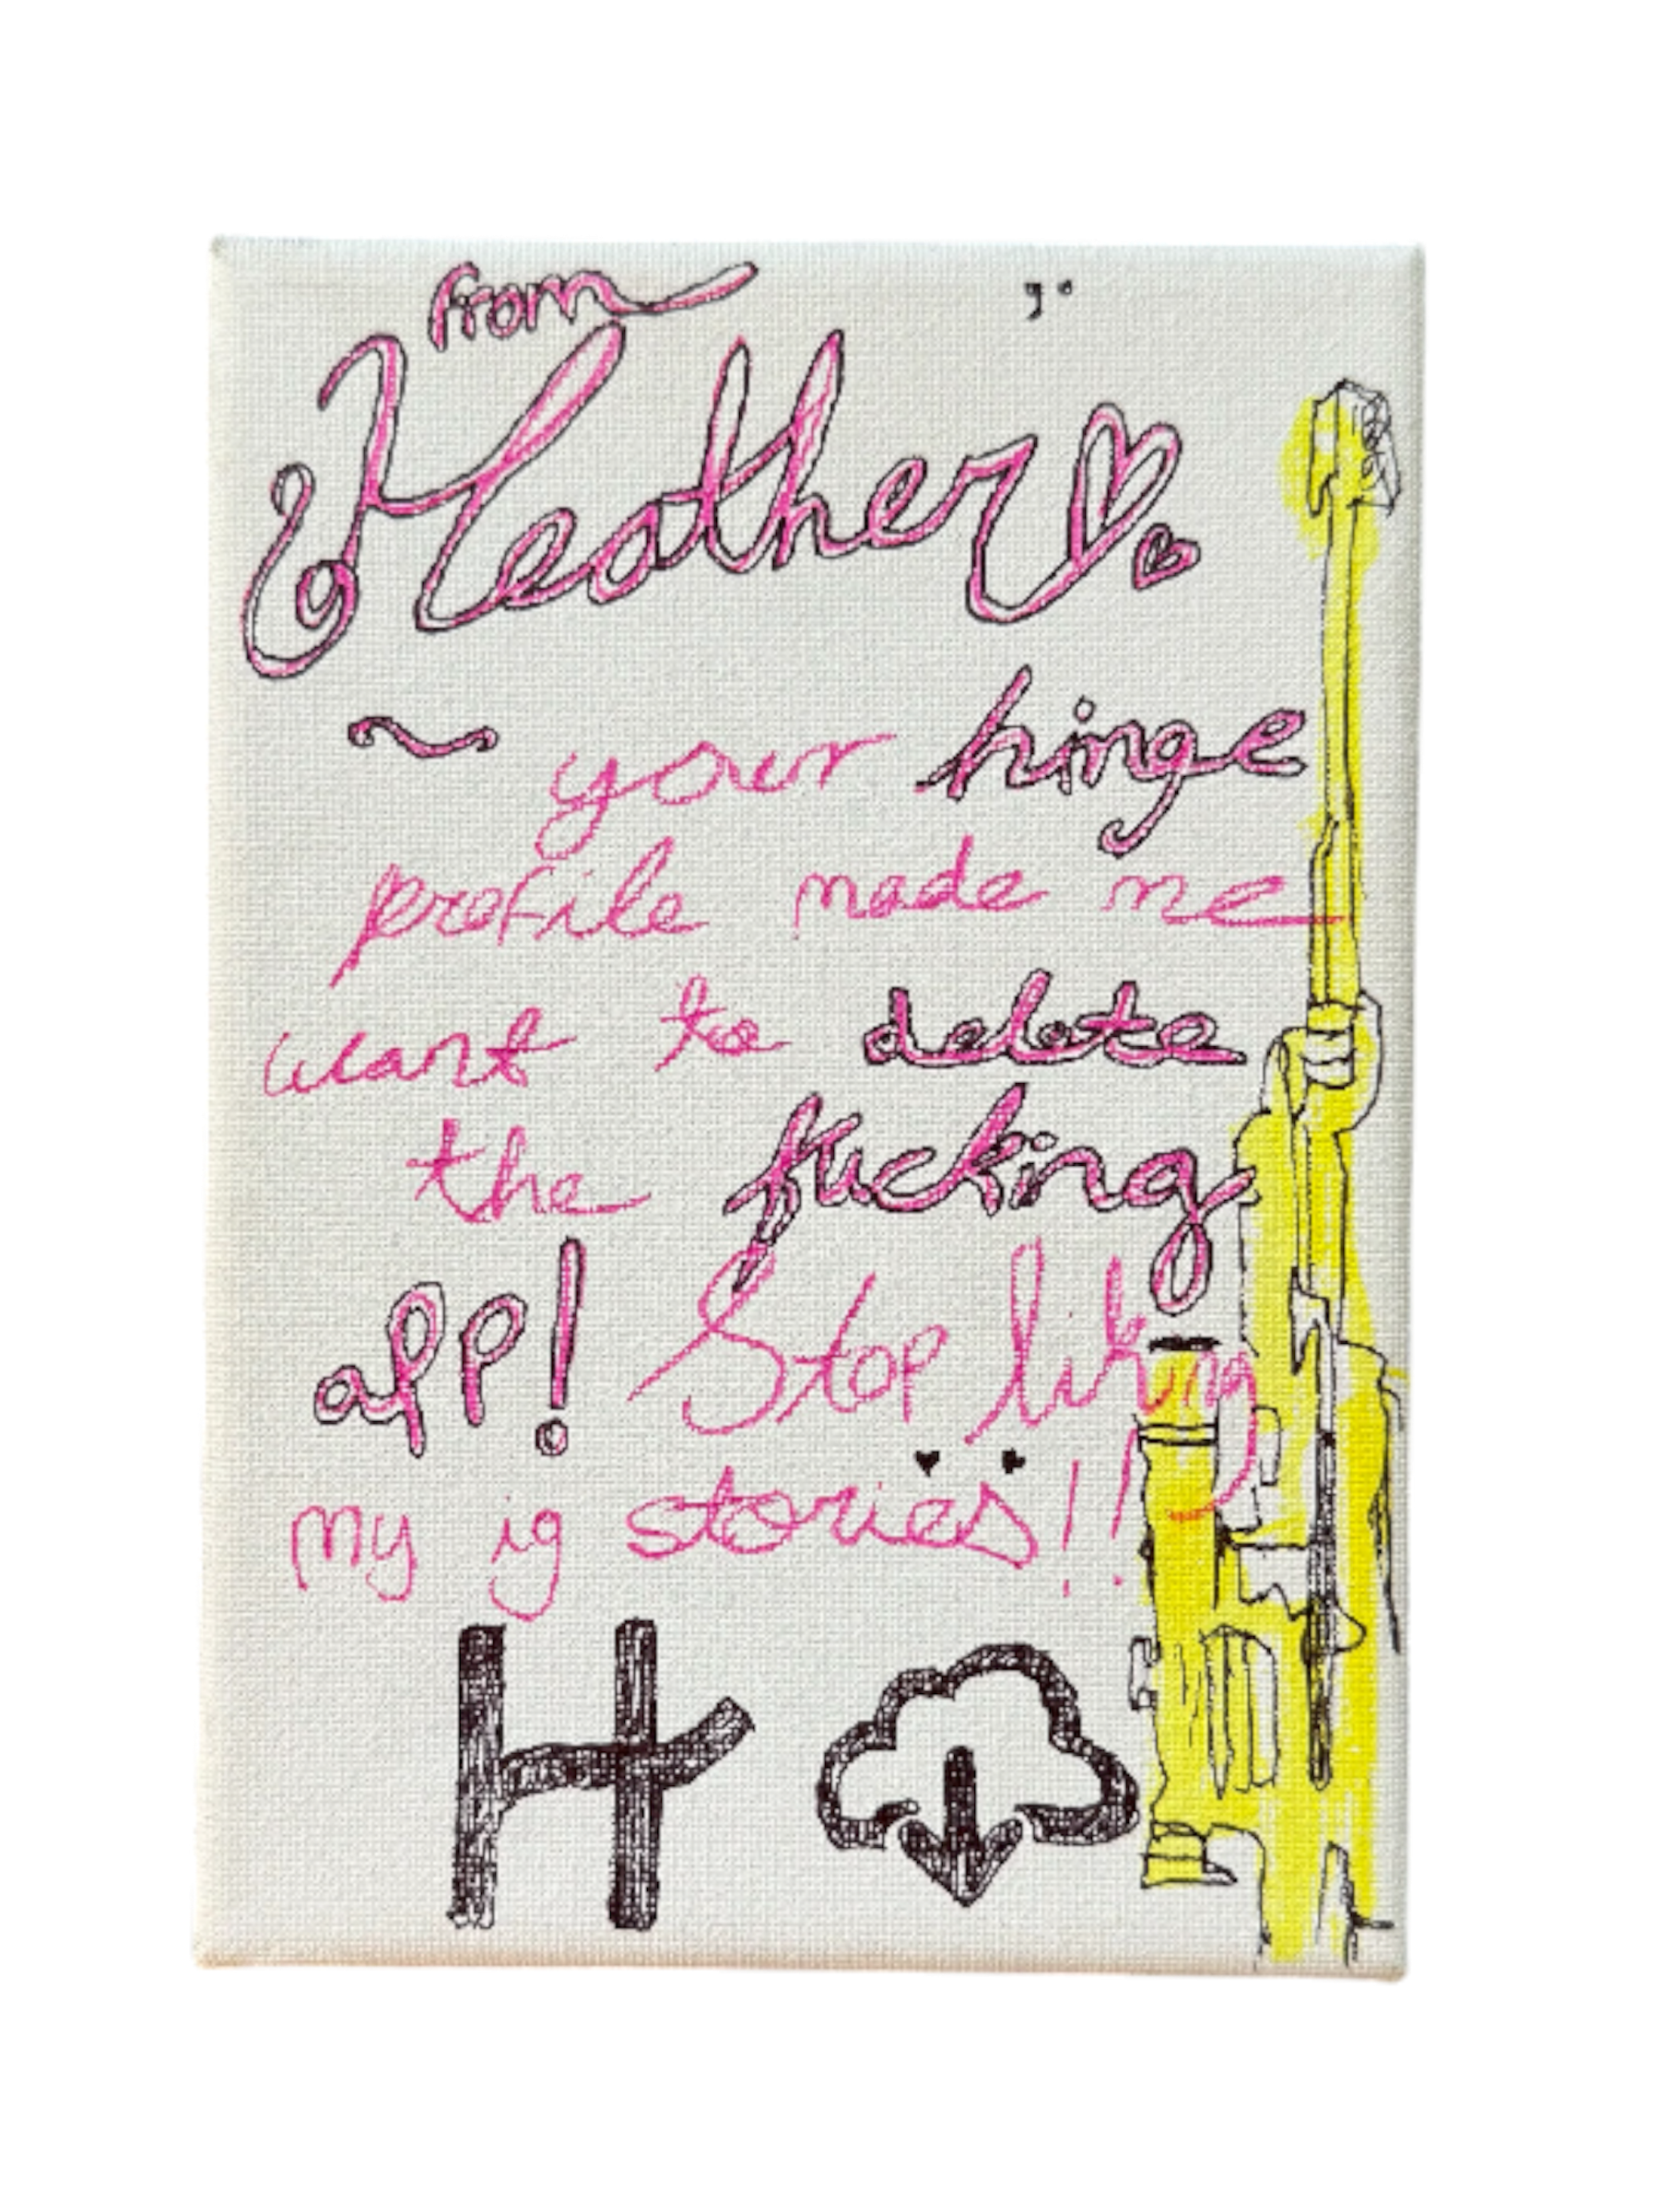 from
Heather
~ your hinge
profile made me
want to delete
the fucking
app! Stop liking
my ig stories!!
H